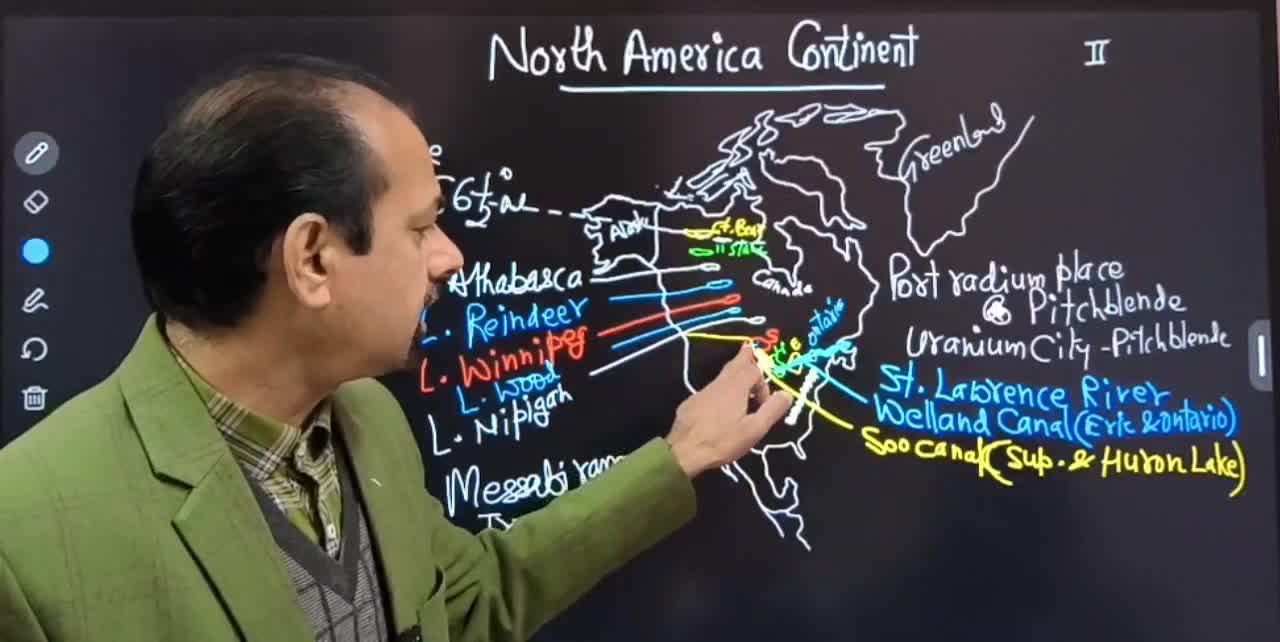 North America Continent
II
Greenland
Alaska
Gt. Bear
" Slave
Canada
Athabasca
L. Reindeer
L. Winnipeg
L. Wood
L. Nipigan
Messabi ran
S
H
Ontario
Port radium place
Pitchblende
Uranium City - Pitchblende
St. Lawrence River
Welland Canal (Erie & Ontario)
Soo Canal (Sup. & Huron Lake)